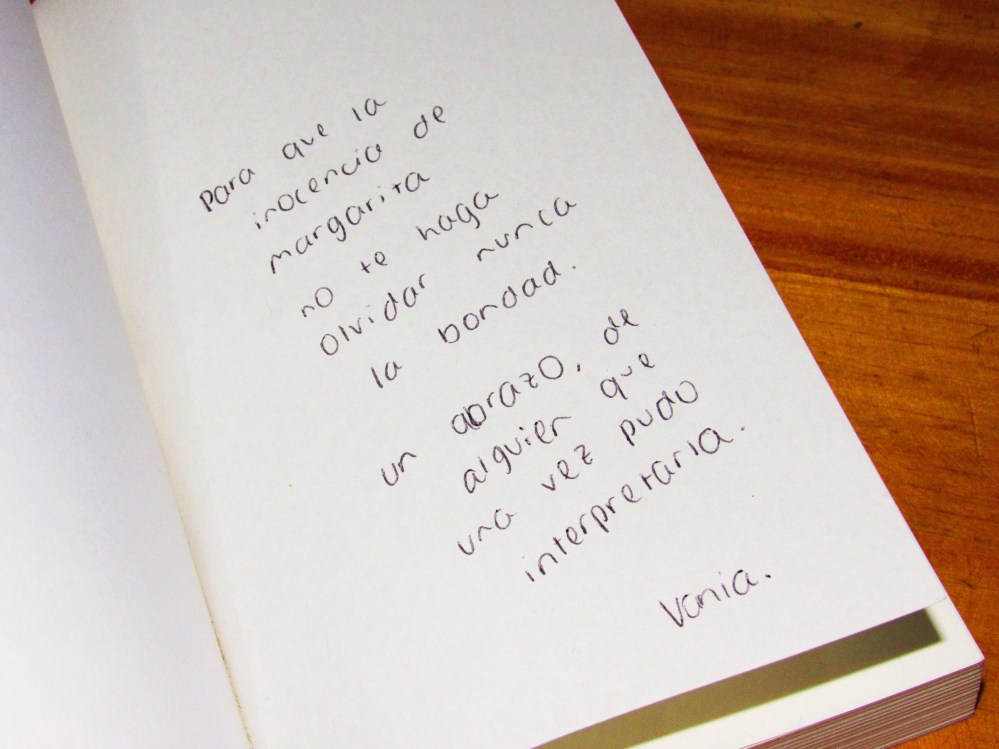 para que la
inocencia de
margarita
no te haga
olvidar nunca
la bondad.
un abrazo, de
alguien que
una vez pudo
interpretarla.
Vania.